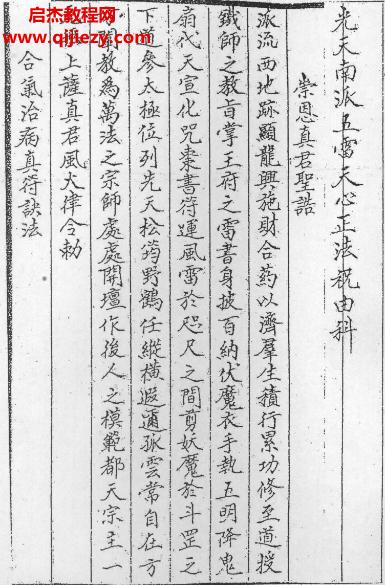 启杰教程网
www.qijiezy.com
先天南派五雷天心正法祝由科
崇恩真君聖誥
派流西地跡顯龍興施財合药以濟羣生積行累功修至道授
鐵師之教旨掌王府之雷書身披百納伏魔衣手執五明降鬼
扇代天宣化咒棗書符運風雷於咫尺之間剪妖魔於斗罡之
下道參太極位列先天松筠野鶴任縱橫遐邇孤雲常自在方
闡教為萬法之宗師處處開壇作後人之模範都天宗主一
無上薩真君風火律令勅
合氣治病真符訣法